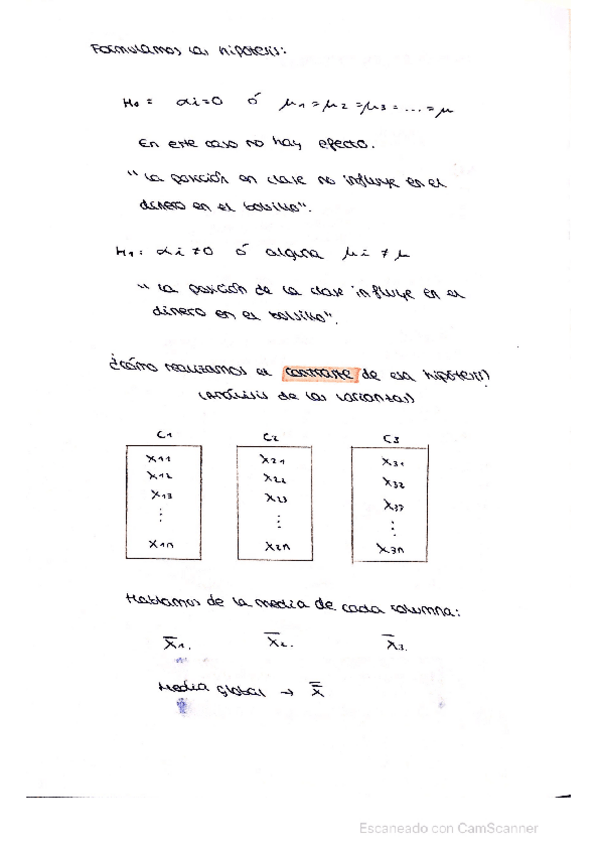 Formulamos las hipótesis:
H₀ = αi=0 ó μ₁=μ₂=μ₃=...=μ
En este caso no hay efecto.
"La posición en clase no influye en el
dinero en el bolsillo".
H₁: αi≠0 ó alguna μi ≠ μ
"La posición de la clase influye en el
dinero en el bolsillo".
¿Cómo realizamos el contraste de esa hipótesis?
(análisis de las varianzas)
C₁ C₂ C₃
X₁₁ X₂₁ X₃₁
X₁₂ X₂₂ X₃₂
X₁₃ X₂₃ X₃₃
⋮ ⋮ ⋮
X₁n X₂n X₃n
Hablamos de la media de cada columna:
X̄₁. X̄₂. X̄₃.
Media global → X̿
Escaneado con CamScanner